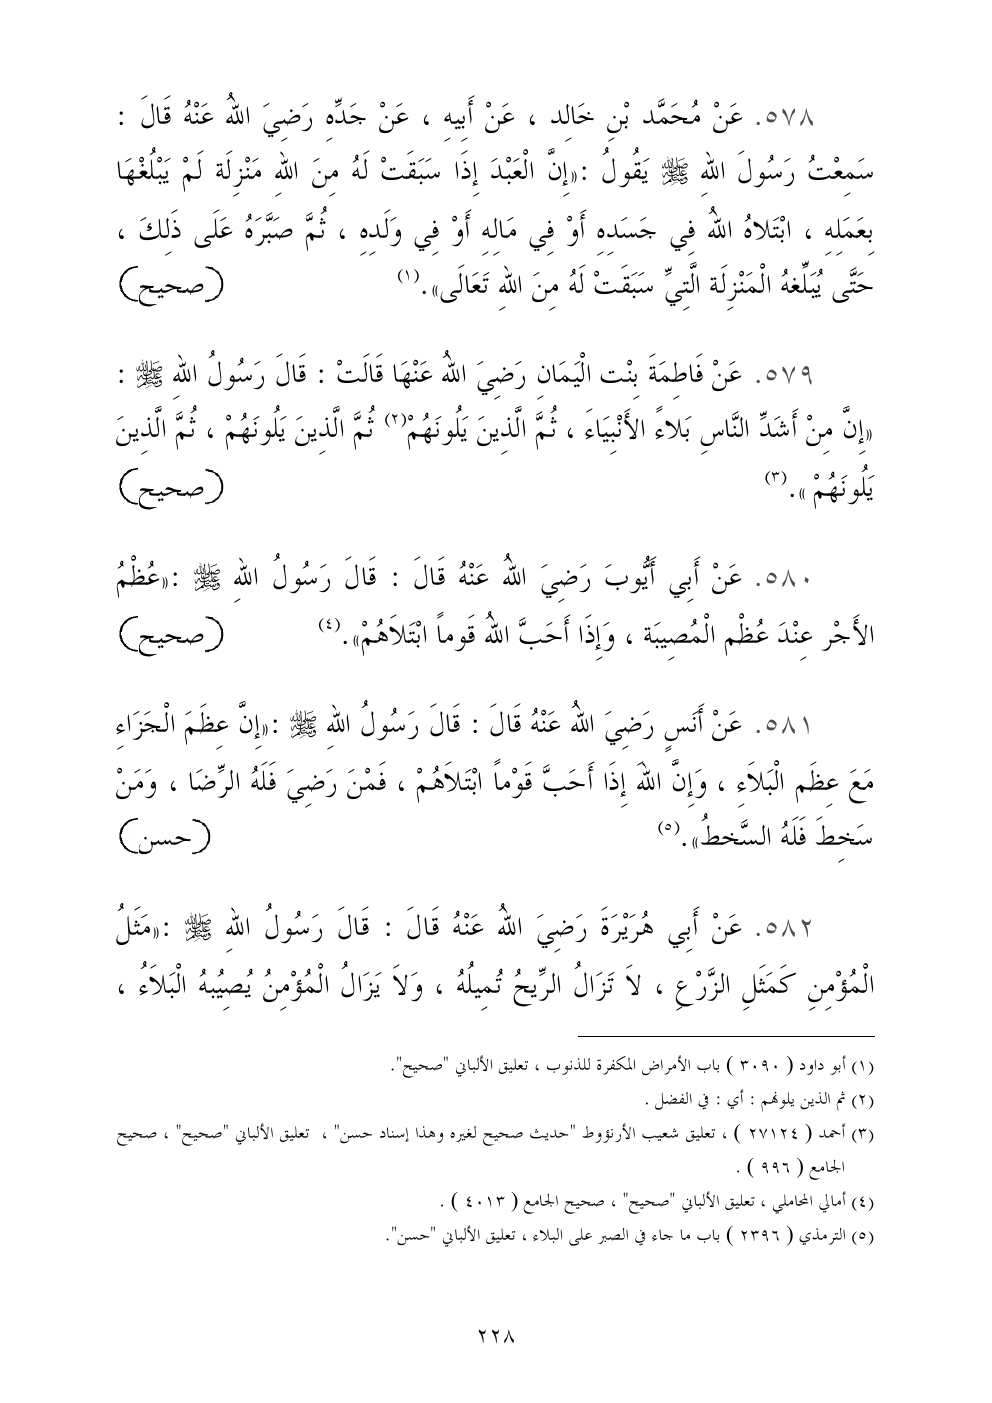 ٥٧٨. عَنْ مُحَمَّد بْنِ خَالِد ، عَنْ أَبِيهِ ، عَنْ جَدِّهِ رَضِيَ اللهُ عَنْهُ قَالَ :
سَمِعْتُ رَسُولَ اللهِ ﷺ يَقُولُ :«إِنَّ الْعَبْدَ إِذَا سَبَقَتْ لَهُ مِنَ اللهِ مَنْزِلَة لَمْ يَبْلُغْهَا
بِعَمَلِهِ ، ابْتَلاهُ اللهُ فِي جَسَدِهِ أَوْ فِي مَالِهِ أَوْ فِي وَلَدِهِ ، ثُمَّ صَبَّرَهُ عَلَى ذَلِكَ ،
حَتَّى يُبَلِّغهُ الْمَنْزِلَة الَّتِيِّ سَبَقَتْ لَهُ مِنَ اللهِ تَعَالَى».(١) (صحيح)
٥٧٩. عَنْ فَاطِمَةَ بِنْت الْيَمَانِ رَضِيَ اللهُ عَنْهَا قَالَتْ : قَالَ رَسُولُ اللهِ ﷺ :
«إِنَّ مِنْ أَشَدِّ النَّاسِ بَلاءً الأَنْبِيَاءَ ، ثُمَّ الَّذِينَ يَلُونَهُمْ(٢) ثُمَّ الَّذِينَ يَلُونَهُمْ ، ثُمَّ الَّذِينَ
يَلُونَهُمْ ».(٣) (صحيح)
٥٨٠. عَنْ أَبِي أَيُّوبَ رَضِيَ اللهُ عَنْهُ قَالَ : قَالَ رَسُولُ اللهِ ﷺ :«عُظْمُ
الأَجْر عِنْدَ عُظْم الْمُصِيبَة ، وَإِذَا أَحَبَّ اللهُ قَوماً ابْتَلاَهُمْ».(٤) (صحيح)
٥٨١. عَنْ أَنَسٍ رَضِيَ اللهُ عَنْهُ قَالَ : قَالَ رَسُولُ اللهِ ﷺ :«إِنَّ عِظَمَ الْجَزَاءِ
مَعَ عِظَم الْبَلاَءِ ، وَإِنَّ اللهَ إِذَا أَحَبَّ قَوْماً ابْتَلاَهُمْ ، فَمْنَ رَضِيَ فَلَهُ الرِّضَا ، وَمَنْ
سَخِطَ فَلَهُ السَّخطُ».(٥) (حسن)
٥٨٢. عَنْ أَبِي هُرَيْرَةَ رَضِيَ اللهُ عَنْهُ قَالَ : قَالَ رَسُولُ اللهِ ﷺ :«مَثَلُ
الْمُؤْمِنِ كَمَثَلِ الزَّرْعِ ، لاَ تَزَالُ الرِّيحُ تُمِيلُهُ ، وَلاَ يَزَالُ الْمُؤْمِنُ يُصِيُبهُ الْبَلاَءُ ،
(١) أبو داود ( ٣٠٩٠ ) باب الأمراض المكفرة للذنوب ، تعليق الألباني "صحيح".
(٢) ثم الذين يلونهم : أي : في الفضل .
(٣) أحمد ( ٢٧١٢٤ ) ، تعليق شعيب الأرنؤوط "حديث صحيح لغيره وهذا إسناد حسن" ، تعليق الألباني "صحيح" ، صحيح
الجامع ( ٩٩٦ ) .
(٤) أمالي المحاملي ، تعليق الألباني "صحيح" ، صحيح الجامع ( ٤٠١٣ ) .
(٥) الترمذي ( ٢٣٩٦ ) باب ما جاء في الصبر على البلاء ، تعليق الألباني "حسن".
٢٢٨